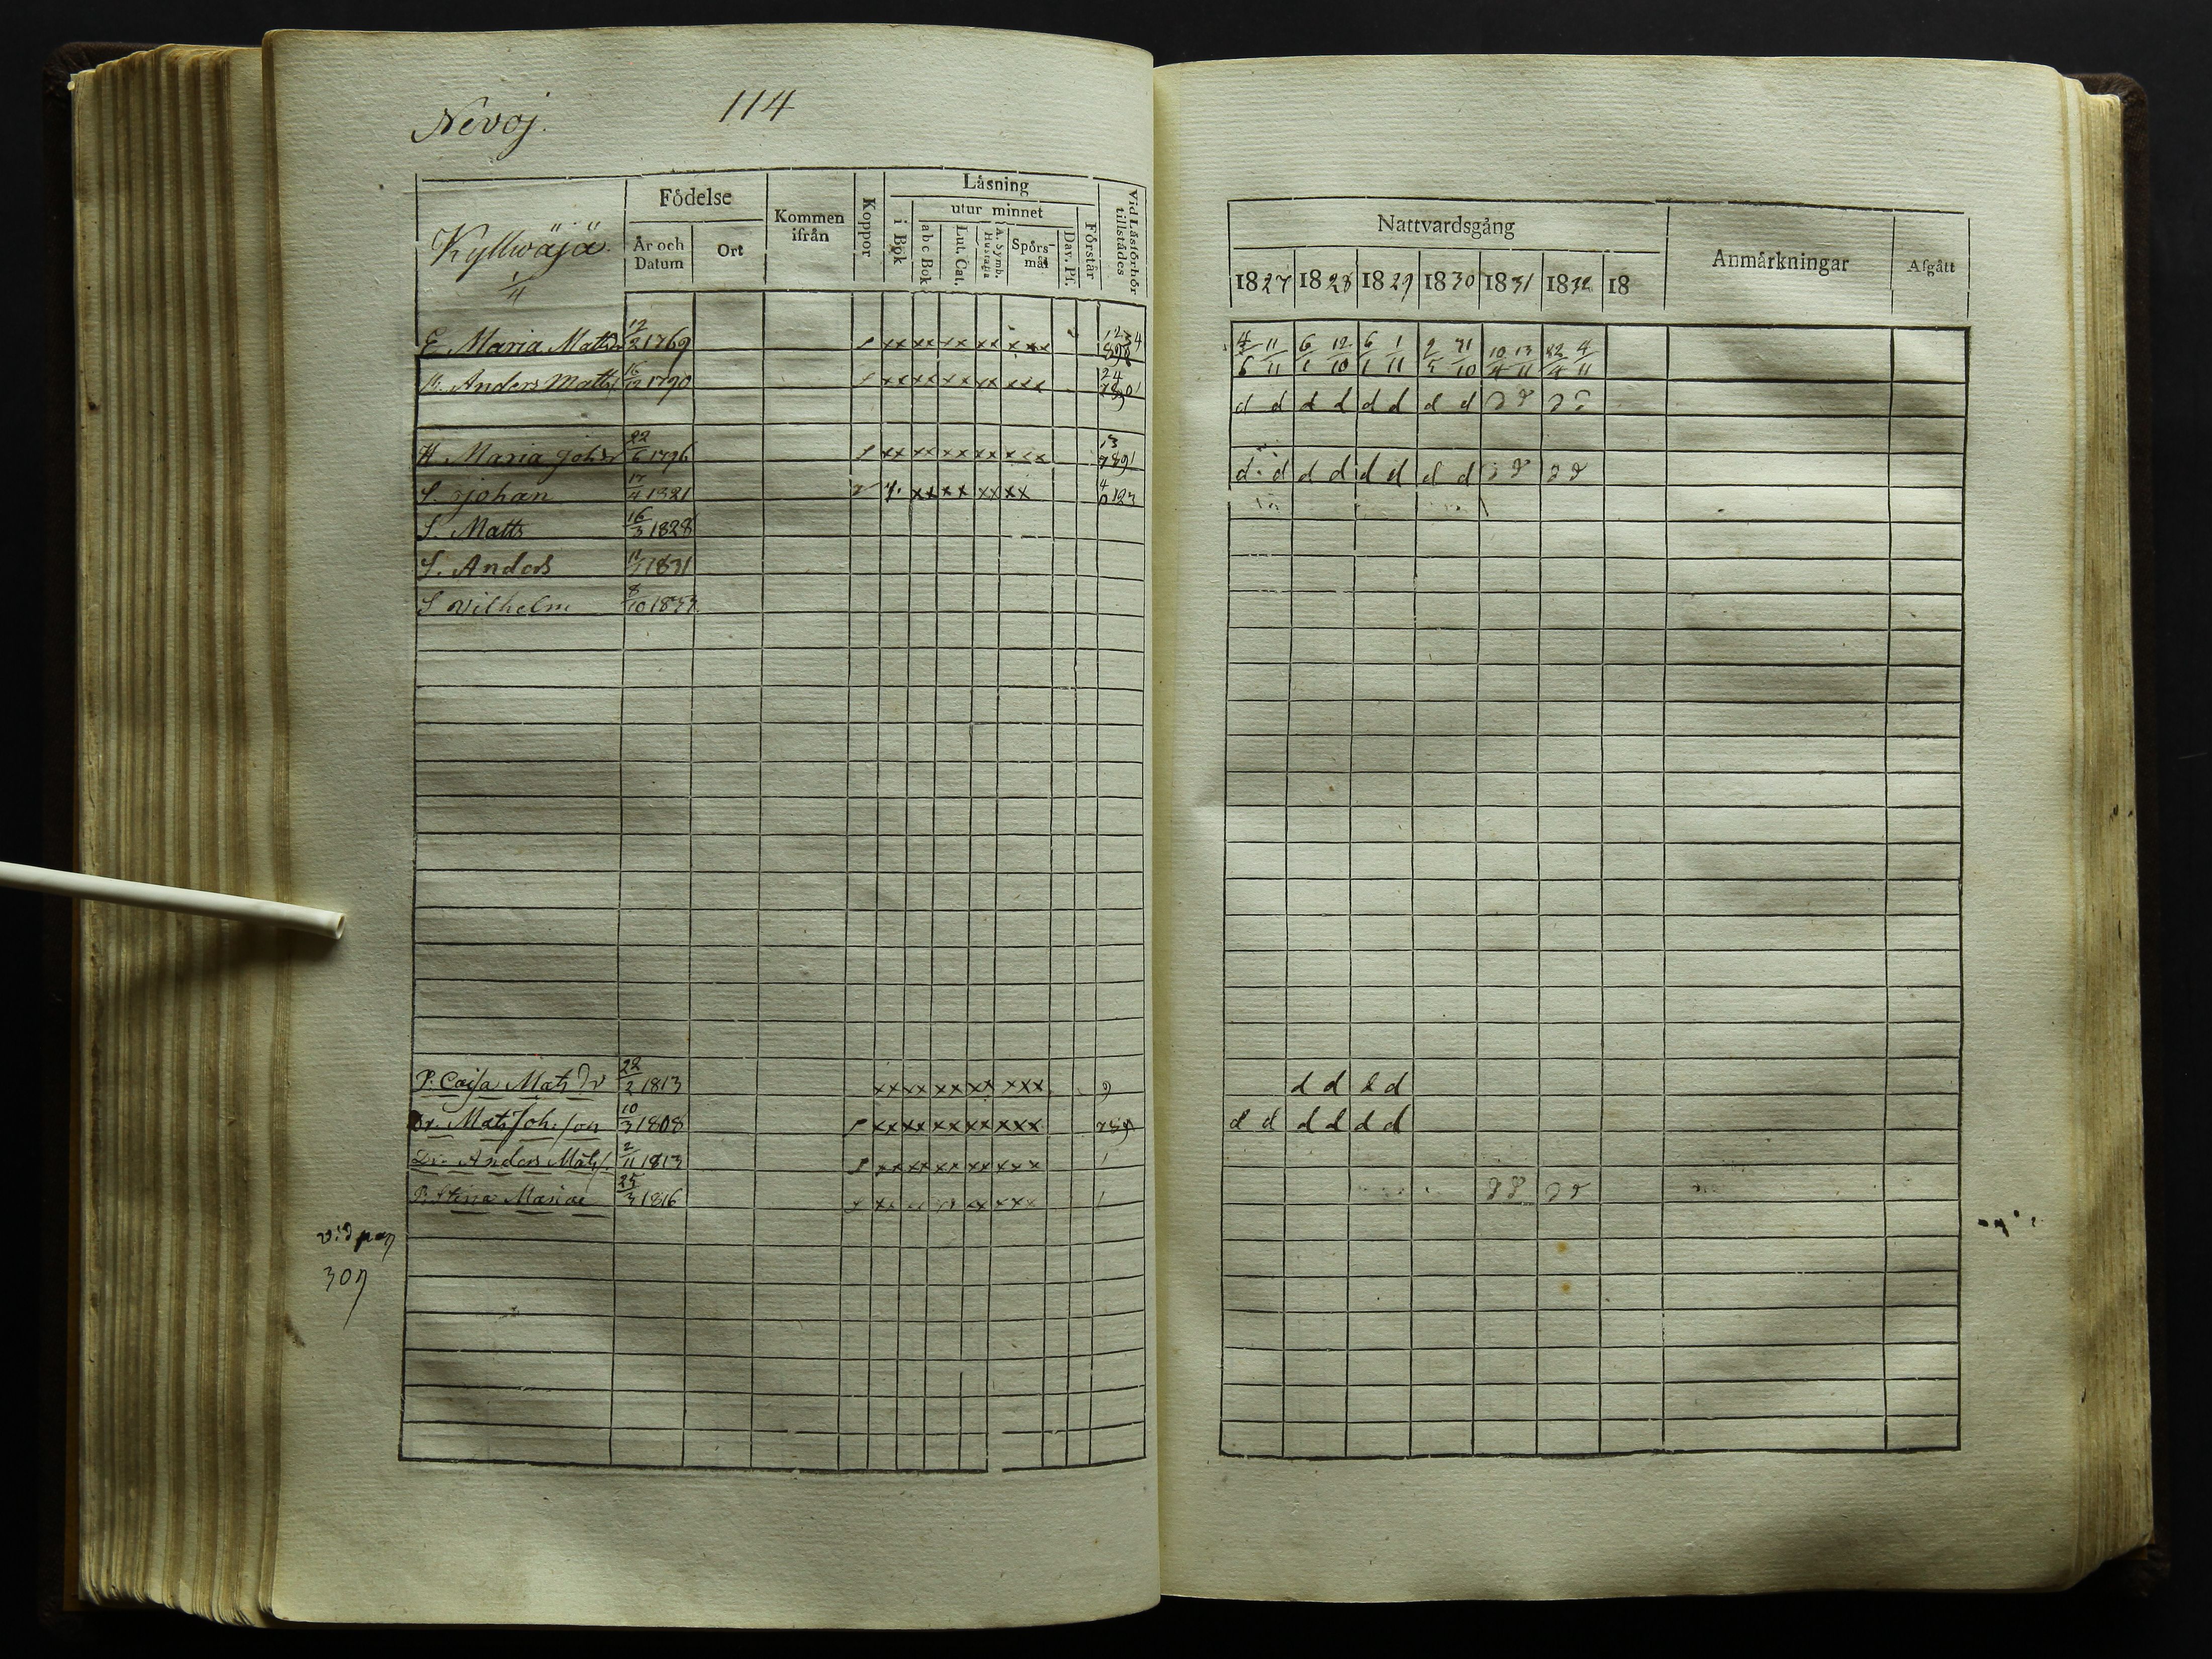 Nevoj. 114
Kyllwäjä. 1/4
Födelse
År och Datum
Ort
Kommen ifrån
Koppor
Läsning
i Bok
utur minnet
abc Bok
Lut. Cat.
A. Symb. Hustafla
Spörsmål
Dav. Ps.
Förstår
Vid Läsförhör tillstädes
Nattvardsgång
1827 1828 1829 1830 1831 1832 18
Anmärkningar
Afgått
E. Maria Mattsdr 12/2 1769 xx xx xx xx xxx
4/6 11/11 6/1 12/10 6/1 1/11 2/5 31/10 10/4 13/11 22/4 4/11
B. Anders Matts. 16/12 1790 xx xx xx xx xxx
d d d d d d d d
H. Maria Johsdr 22/6 1796 xx xx xx xx xxx
d d d d d d d d
S. Johan 17/4 1821 xx xx xx xx
S. Matts 16/3 1828
S. Anders 1831
S Vilhelm 8/10 1833
P. Caisa Mats Dr 22/2 1813 xx xx xx xx xxx 9
d d d d
Dr. Mats Johsson 10/3 1808 xx xx xx xx xxx 789
d d d d d d
Dr. Anders Mats. 2/11 1813 xx xx xx xx xxx 1
P. Stina Maria 25/3 1816 xx xx xxx 1
vid pag
307